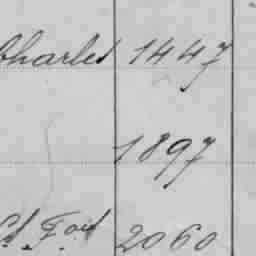 Charles 1447
1897
Fort 2060